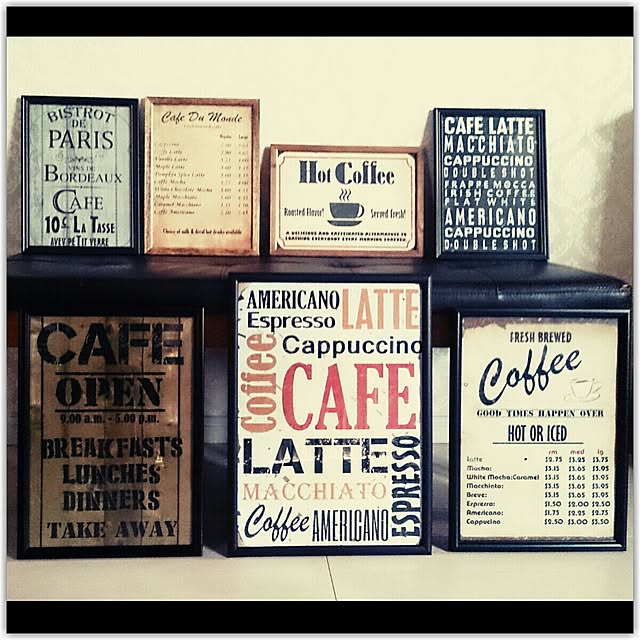 BISTROT
DE
PARIS
VINS DE
BORDEAUX
CAFE
10¢ LA TASSE
AVEC PETIT VERRE
Cafe Du Monde
Cappuccino
Caffe Latte
Vanilla Latte
Maple Latte
Pumpkin Spice Latte
Caffe Mocha
White Chocolate Mocha
Maple Macchiato
Caramel Macchiato
Caffe Americano
Choice of milk & decaf hot drinks available
Hot Coffee
Roasted Flavor! Served Fresh!
A DELICIOUS AND CAFFEINATED ALTERNATIVE TO
LOATHING EVERYBODY EVERY MORNING FOREVER
CAFE LATTE
MACCHIATO
CAPPUCCINO
DOUBLE SHOT
FRAPPE MOCCA
IRISH COFFEE
FLAT WHITE
AMERICANO
CAPPUCCINO
DOUBLE SHOT
CAFE
OPEN
9.00 a.m. - 5.00 p.m.
BREAKFASTS
LUNCHES
DINNERS
TAKE AWAY
AMERICANO
LATTE
Espresso
Coffee
Cappuccino
CAFE
LATTE
ESPRESSO
MACCHIATO
Coffee AMERICANO
FRESH BREWED
Coffee
GOOD TIMES HAPPEN OVER
HOT OR ICED
sm med lg
Latte $2.75 $3.25 $3.75
Mocha: $3.15 $3.65 $3.95
White Mocha:Caramel $3.15 $3.65 $3.95
Macchiato: $3.15 $3.65 $3.95
Breve: $3.15 $3.65 $3.95
Espresso: $1.50 $2.00 $2.50
Americano: $1.75 $2.25 $2.75
Cappucino $2.50 $3.00 $3.50